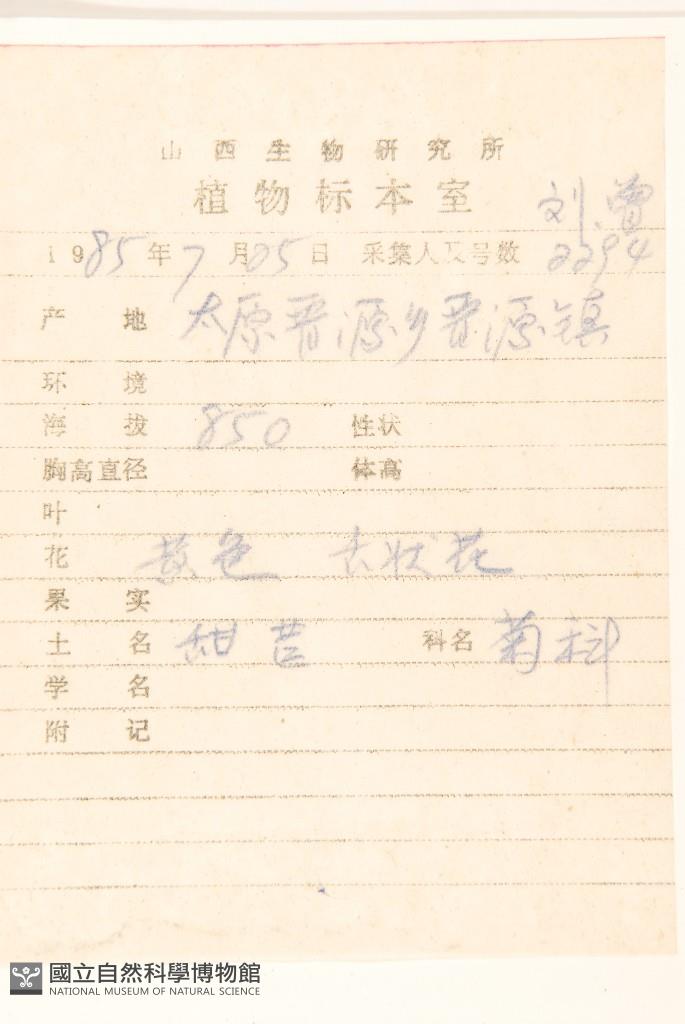 山西生物研究所
植物标本室
刘、曾
1985年7月25日 采集人及号数 2294
产地 太原晋源乡晋源镇
环境
海拔 850 性状
胸高直径 体高
叶
花 黄色 舌状花
果实
土名 甜苣 科名 菊科
学名
附记
國立自然科學博物館
NATIONAL MUSEUM OF NATURAL SCIENCE